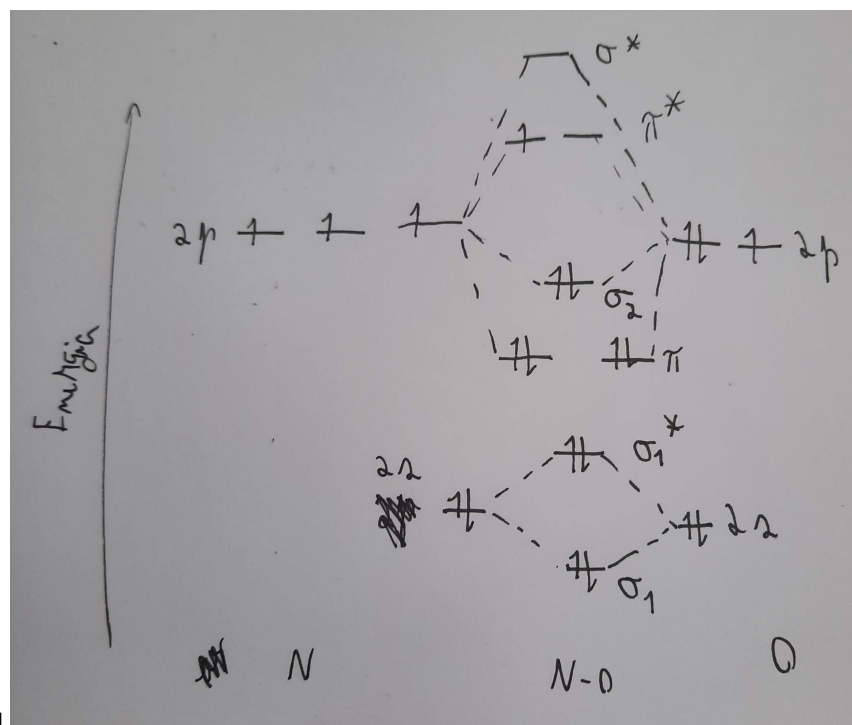 σ*
π*
2p
2p
σ₂
π
Energia
σ₁*
2s
2s
σ₁
N
N-O
O